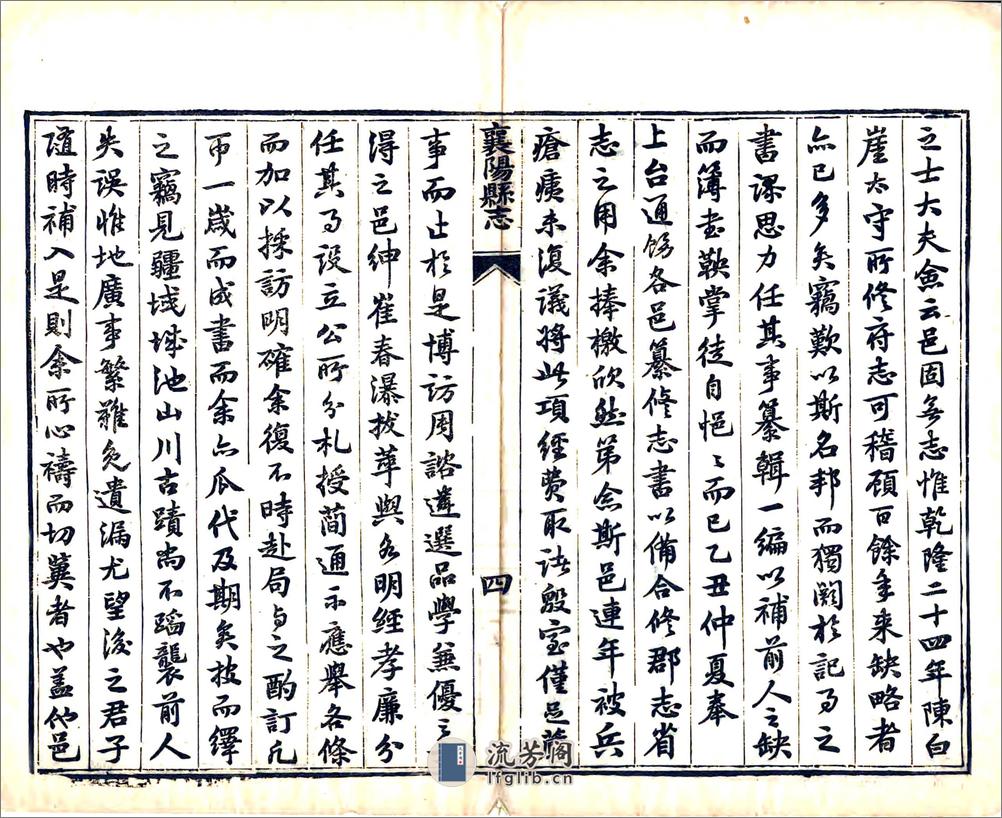 之士大夫僉云邑固無志惟乾隆二十四年陳白
崖太守所修府志可稽碩百餘年來缺略者
亦已多矣竊歎以斯名邦而獨闕於記事之
書謬思力任其事纂輯一編以補前人之缺
而簿書鞅掌徒自悒〻而已乙丑仲夏奉
上台通飭各邑纂修志書以備合修郡志省
志之用余捧檄欣然第念斯邑連年被兵
瘡痍未復議將此項經費取諸殷室僅足蕆
襄陽縣志
四
事而止於是博訪周諮遴選品學兼優之
得之邑紳崔春瀑拔萃與各明經孝廉分
任其事設立公所分札授簡通示應舉各條
而加以採訪明確余復不時赴局與之酌訂凡
帀一歲而成書而余亦瓜代及期矣披而繹
之竊見疆域城池山川古蹟尚不蹈襲前人
失誤惟地廣事繁難免遺漏尤望後之君子
隨時補入是則余所心禱而切冀者也蓋他邑
流芳阁
lfglib.cn